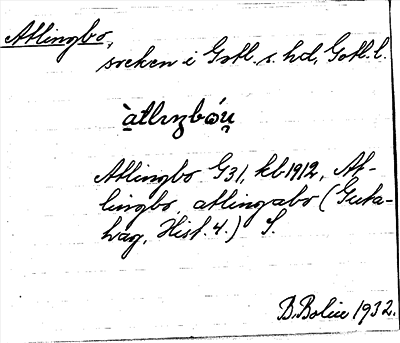 Atlingbo,
socken i Gotl. s. hd, Gotl. l.
Atlingbo G31, kb 1912, At-
lingbo, atlingabo (Guta-
lag, Hist. 4.) S.
B. Bolin 1932.